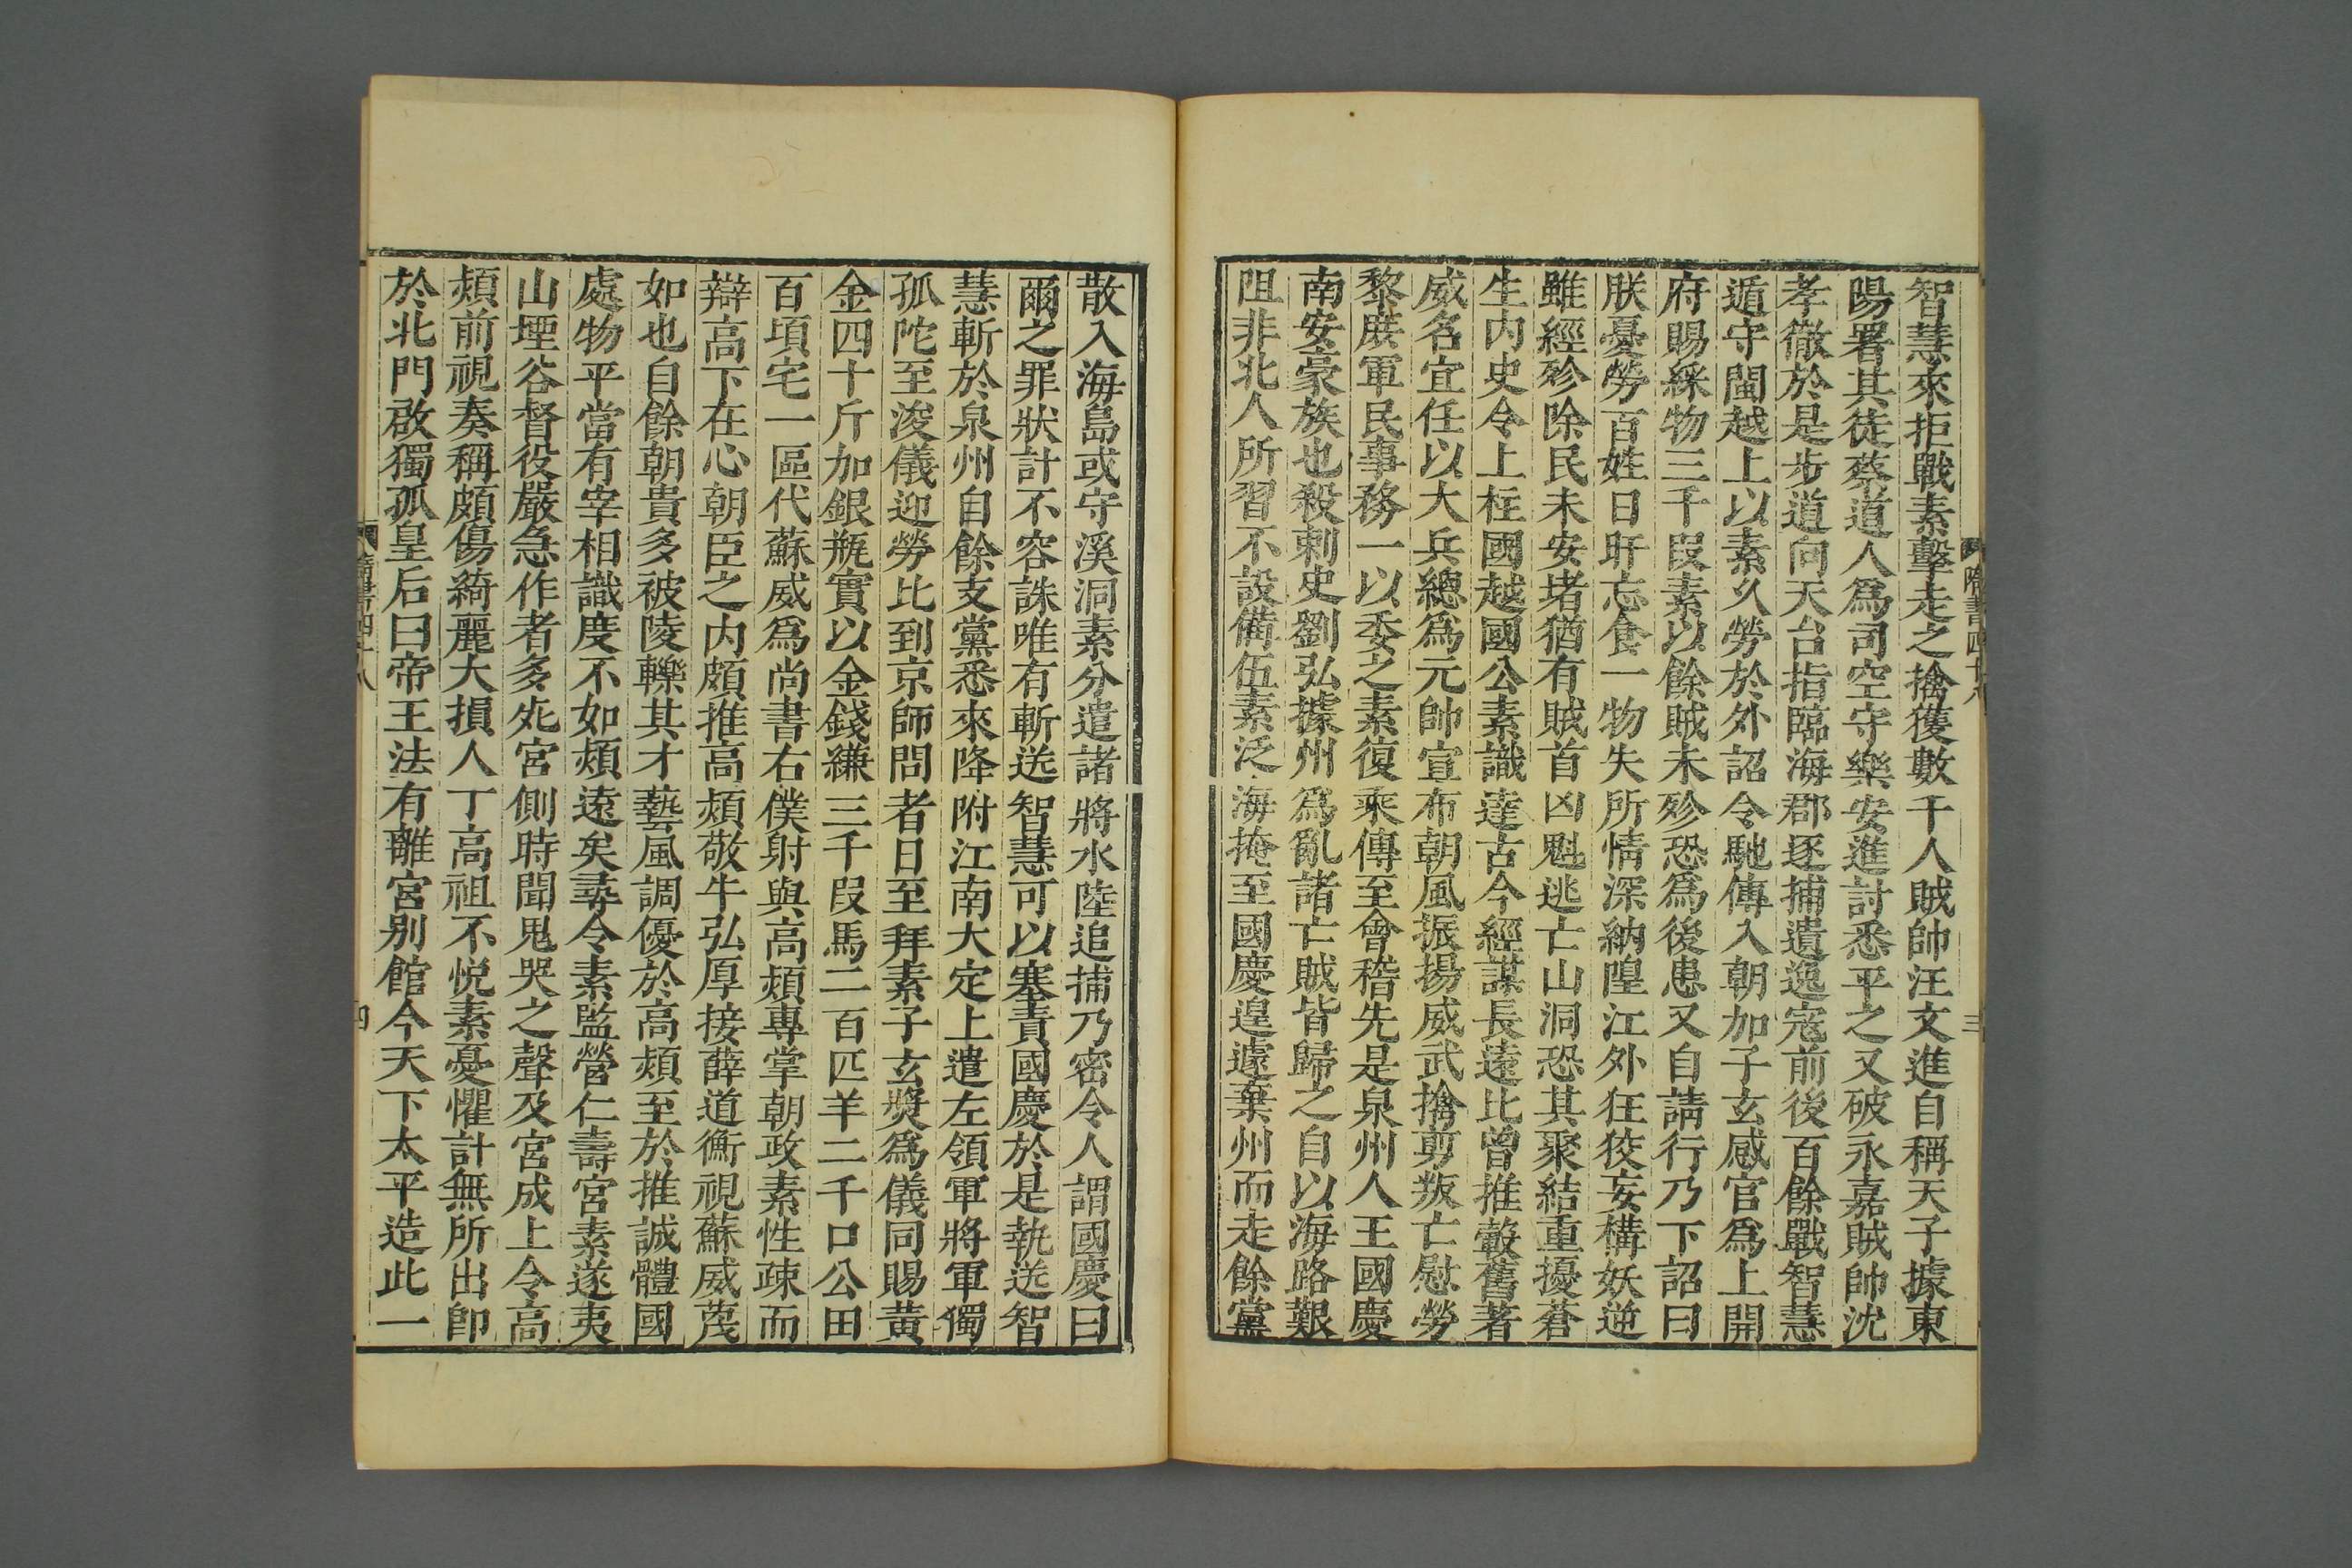 智慧來拒戰素擊走之擒獲數千人賊帥汪文進自稱天子據東
陽署其徒蔡道人爲司空守樂安進討悉平之又破永嘉賊帥沈
孝徹於是步道向天台指臨海郡逐捕遺逸寇前後百餘戰智慧
遁守閩越上以素久勞於外詔令馳傳入朝加子玄感官爲上開
府賜綵物三千段素以餘賊未殄恐爲後患又自請行乃下詔曰
朕憂勞百姓日旰忘食一物失所情深納隍江外狂狡妄構妖逆
雖經殄除民未安堵猶有賊首凶魁逃亡山洞恐其聚結重擾蒼
生内史令上柱國越國公素識達古今經謀長遠比曾推轂舊著
威名宜任以大兵總爲元帥宣布朝風振揚威武擒剪叛亡慰勞
黎庶軍民事務一以委之素復乘傳至會稽先是泉州人王國慶
南安豪族也殺刺史劉弘據州爲亂諸亡賊皆歸之自以海路艱
阻非北人所習不設備伍素泛海掩至國慶遑遽棄州而走餘黨
隋書四十八
三
散入海島或守溪洞素分遣諸將水陸追捕乃密令人謂國慶曰
爾之罪狀計不容誅唯有斬送智慧可以塞責國慶於是執送智
慧斬於泉州自餘支黨悉來降附江南大定上遣左領軍將軍獨
孤陀至浚儀迎勞比到京師問者日至拜素子玄奬爲儀同賜黄
金四十斤加銀瓶實以金錢縑三千段馬二百匹羊二千口公田
百頃宅一區代蘇威爲尚書右僕射與高熲專掌朝政素性疎而
辯高下在心朝臣之内頗推高熲敬牛弘厚接薛道衡視蘇威蔑
如也自餘朝貴多被陵轢其才藝風調優於高熲至於推誠體國
處物平當有宰相識度不如熲遠矣尋令素監營仁壽宮素遂夷
山堙谷督役嚴急作者多死宮側時聞鬼哭之聲及宮成上令高
熲前視奏稱頗傷綺麗大損人丁高祖不悦素憂懼計無所出即
於北門啟獨孤皇后曰帝王法有離宮别館今天下太平造此一
隋書四十八
四